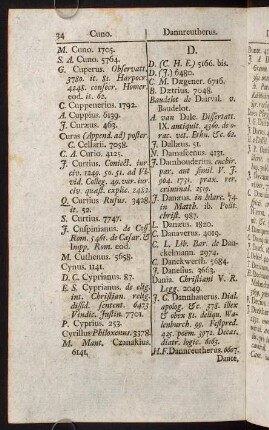 34 Cuno. Dannreutherus.
M. Cuno. 1705.
S. A. Cuno. 5764.
G. Cuperus. Observatt.
3780. it. 81. Harpocr.
4248. consecr. Homer.
eod. it. 62.
C. Cuppenerius. 1792.
A. Cuppius. 6139.
J. Curæus. 463.
Curas (Append. ad) poster.
C. Cellarii. 7058.
C. A. Curio. 4125.
J. Curtius. Coniect. iur
civ. 1249. 50. 51. ad Vi-
vid. Colleg. 49. var. iur.
civ. quæst. explic. 2482.
Q. Curtius Rufus. 3428.
it. 52.
S. Curtius. 7747.
J. Cuspinianus. de Coss.
Rom. 5461. de Cæsar. &
Impp. Rom. eod.
M. Cuthenus. 5658.
Cynus. 1141.
D. C. Cyprianus. 87.
E. S. Cyprianus. de elig.
int. Christian. relig.
dissid. sentent. 6473
Vindic. Justin. 7701.
P. Cyprius. 253.
Cyrillus Philoxenus. 3378.
M. Mant. Cannakius.
6141.
D.
D. (C. H. E.) 5166. bis.
D. (J.) 6480.
C. M. Dagener. 6716.
B. Datrius. 7048.
Baudelot de Dairval. v.
Baudelot.
A. van Dale. Dissertatt.
IX. antiquit. 4360. de o-
rac. vet. Ethn. &c. 62.
J. Dallæus. 51.
N. Damascenus. 4131.
J. Damhouderius. enchir.
par. aut simil. V. J.
904. 1771. prax. rer.
criminal. 2519.
J. Damius. in Marc. 74.
in Matth. ib. Polit.
christ. 987.
L. Danæus. 1820.
C. Danaverus. 4019.
C. L. Lib. Bar. de Dan-
ckelmann. 2974.
C. Danckwerth. 5684.
J. Danesius. 3663.
Dania. Christiani V. R.
Legg. 2049.
J. C. Dannhauerus. Diss.
apolog. &c. 378. iben
& oben 81. deliqu. Wa-
lenburch. 99. Fastpred.
425. poem. 3972. Decas.
diatr. logic. 6163.
H. F. Dannreutherus. 6667.
Dante,